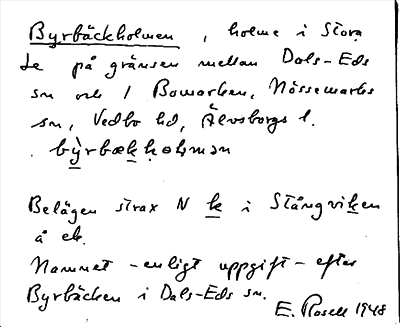 Byrbäckholmen, holme i Stora
Le på gränsen mellan Dals-Eds
sn och / Bomarken, Nössemarks
sn, Vedbo hd, Älvsborgs l.
. by̍rbækhɔlmən
Belägen strax N k i Stångviken
å ek.
Namnet - enligt uppgift - efter
Byrbäcken i Dals-Eds sn.
E. Rosell 1948